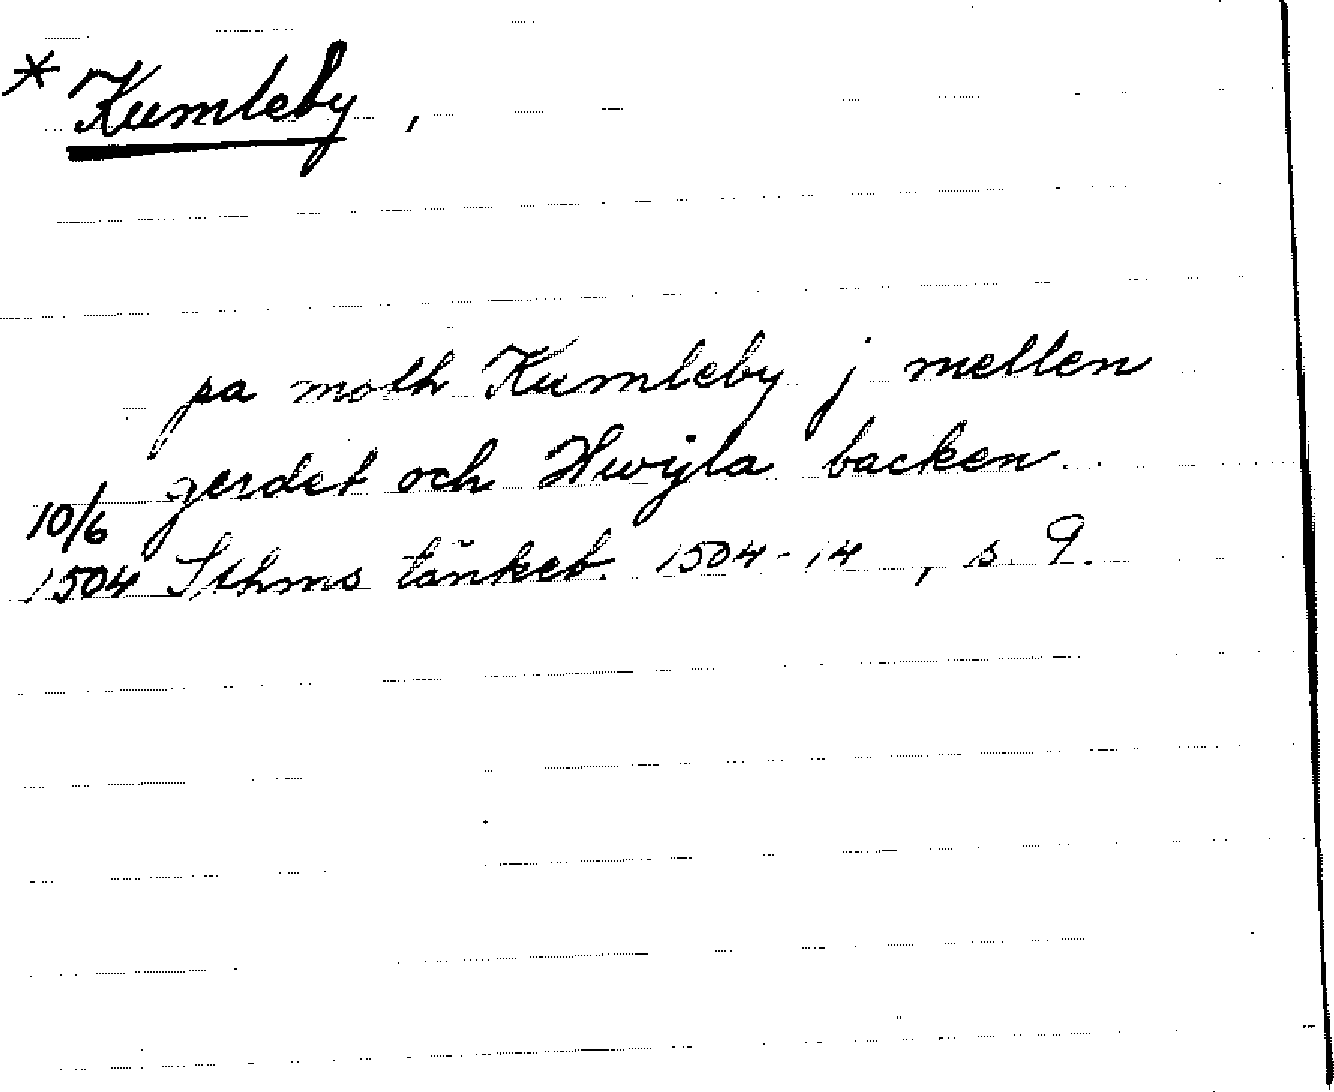 * Kumleby,
pa moth Kumleby j mellen
gerdet och Hwijla backen
10/6
1504 Sthms tänkeb. 1504-14, s. 9.